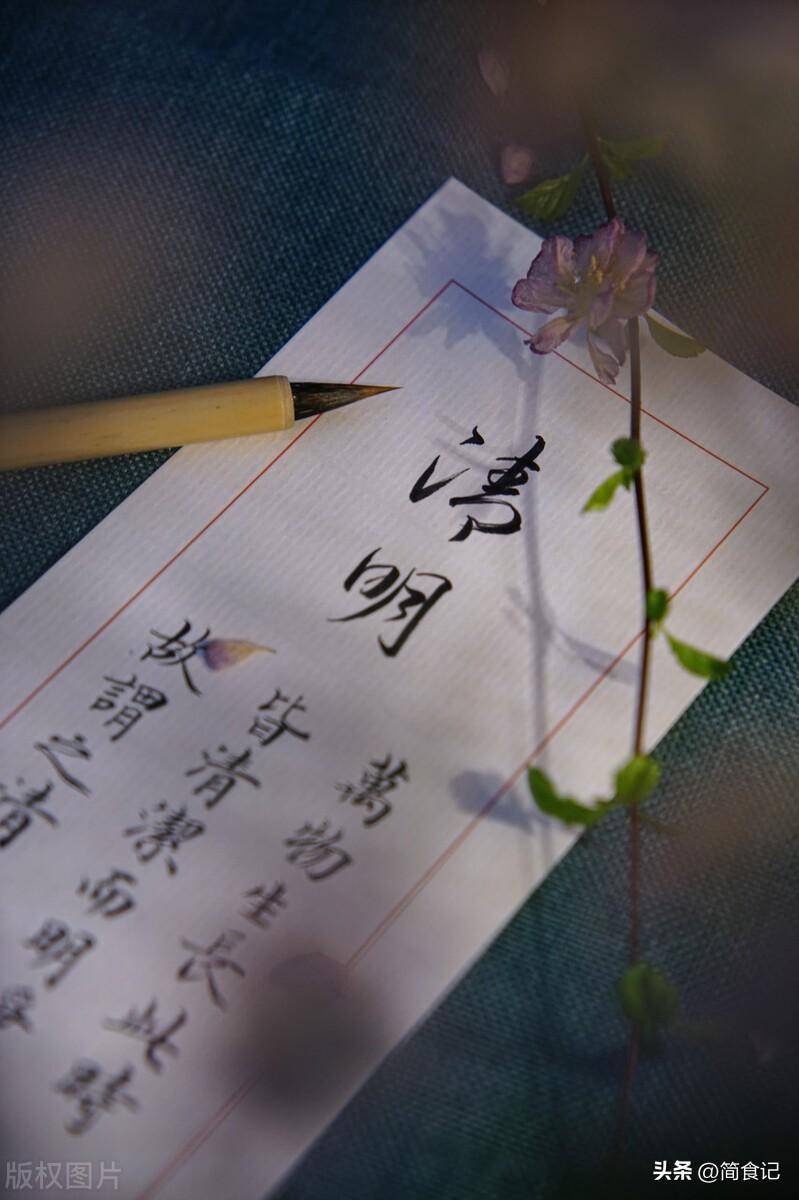 清明
萬物生長此時
皆清潔而明
故謂之清
版权图片
头条 @简食记